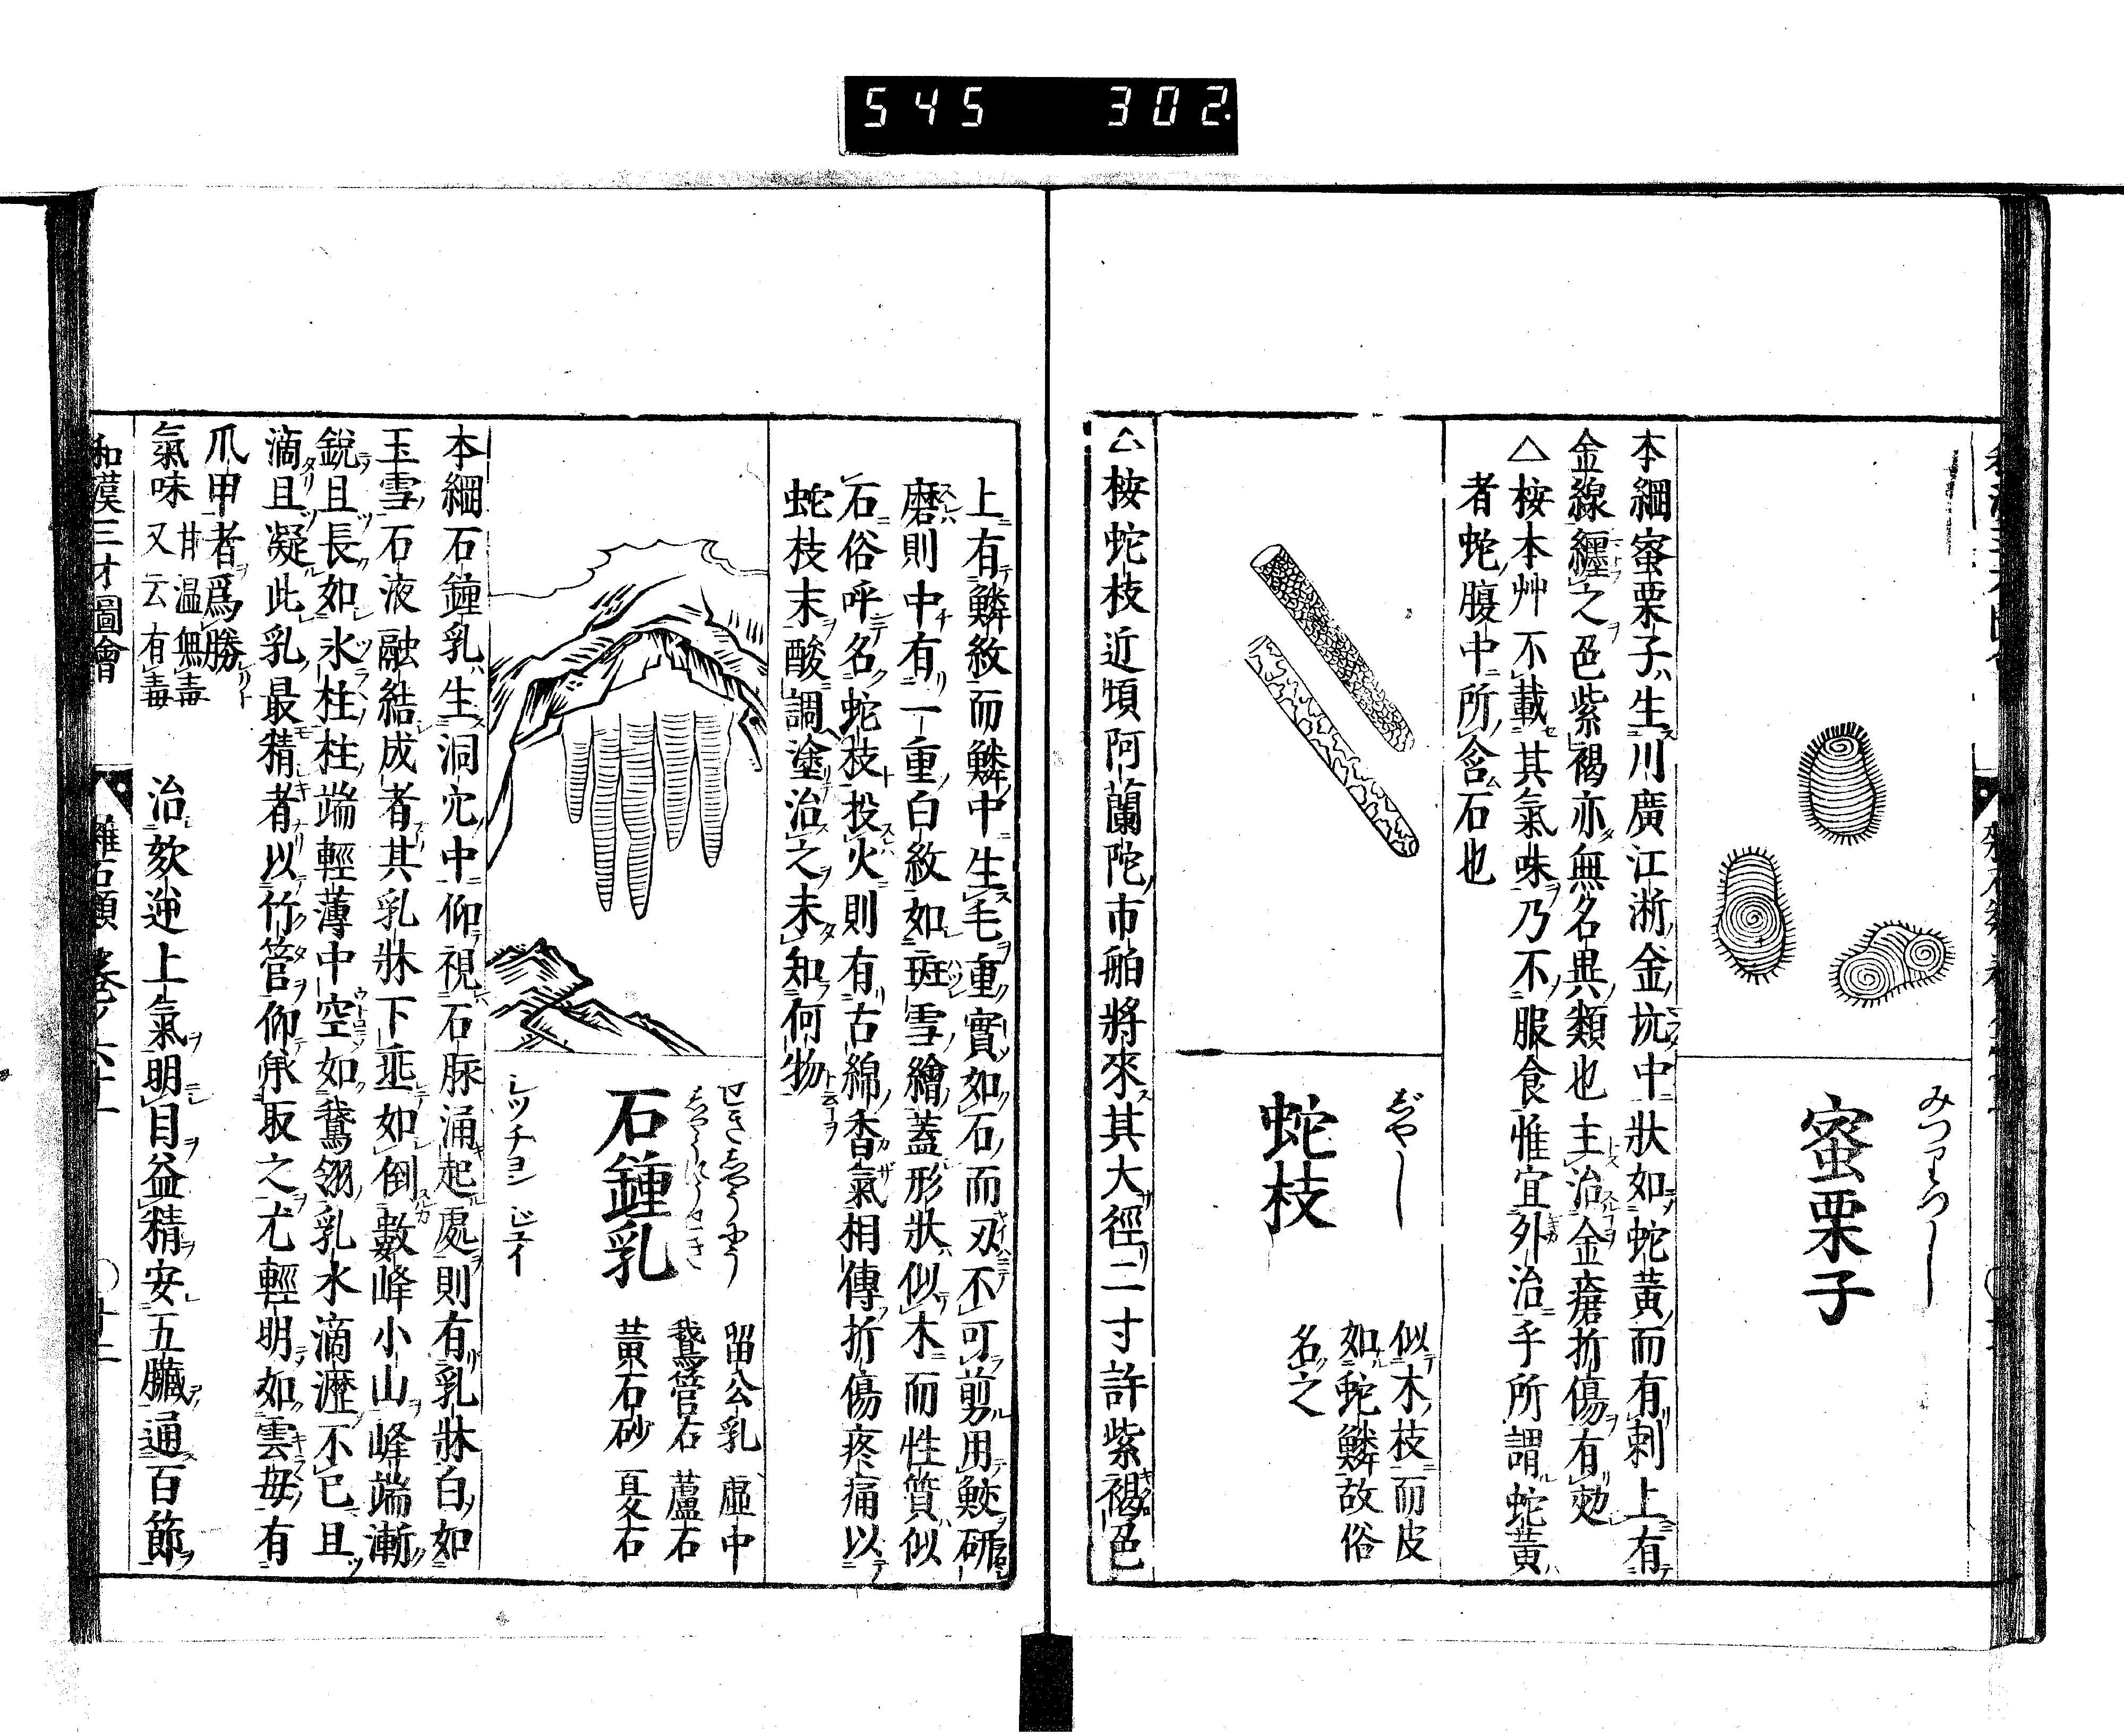 545 302
みつりつし
蜜栗子
本綱蜜栗子生川廣江淅金坑中狀如蛇黃而有刺上有
金線纒之色紫褐亦無名異類也主治金瘡折傷有効
△按本艸不載其氣味乃不服食惟宜外治乎所謂蛇黃
者蛇腹中所含石也
じやし
蛇枝
似木枝而皮
如蛇鱗故俗
名之
△按蛇枝近頃阿蘭陀市舶將來其大徑二寸許紫褐色
上有鱗紋而鱗中生毛重實如石而刃不可剪用鮫研
磨則中有一重白紋如斑雪繪蓋形狀似木而性質似
石俗呼名蛇枝投火則有古綿香氣相傳折傷疼痛以
蛇枝末酸調塗治之未知何物
せきしやうにう
石鍾乳
シツチヨン ジユイ
畱公乳 虛中
鵞管石 蘆石
黃石砂 夏石
本綱石鍾乳生洞穴中仰視石脉涌起處則有乳牀白如
玉雪石液融結成者其乳牀下垂如倒數峰小山峰端漸
銳且長如氷柱柱端輕薄中空如鵞翎乳水滴瀝不已且
滴且凝此乳最精者以竹管仰承取之尤輕明如雲母有
爪甲者爲勝
氣味 甘温無毒
又云有毒
治欬逆上氣明目益精安五臟通百節
和漢三才圖會
雜石類 卷ノ六十一
〇廿二